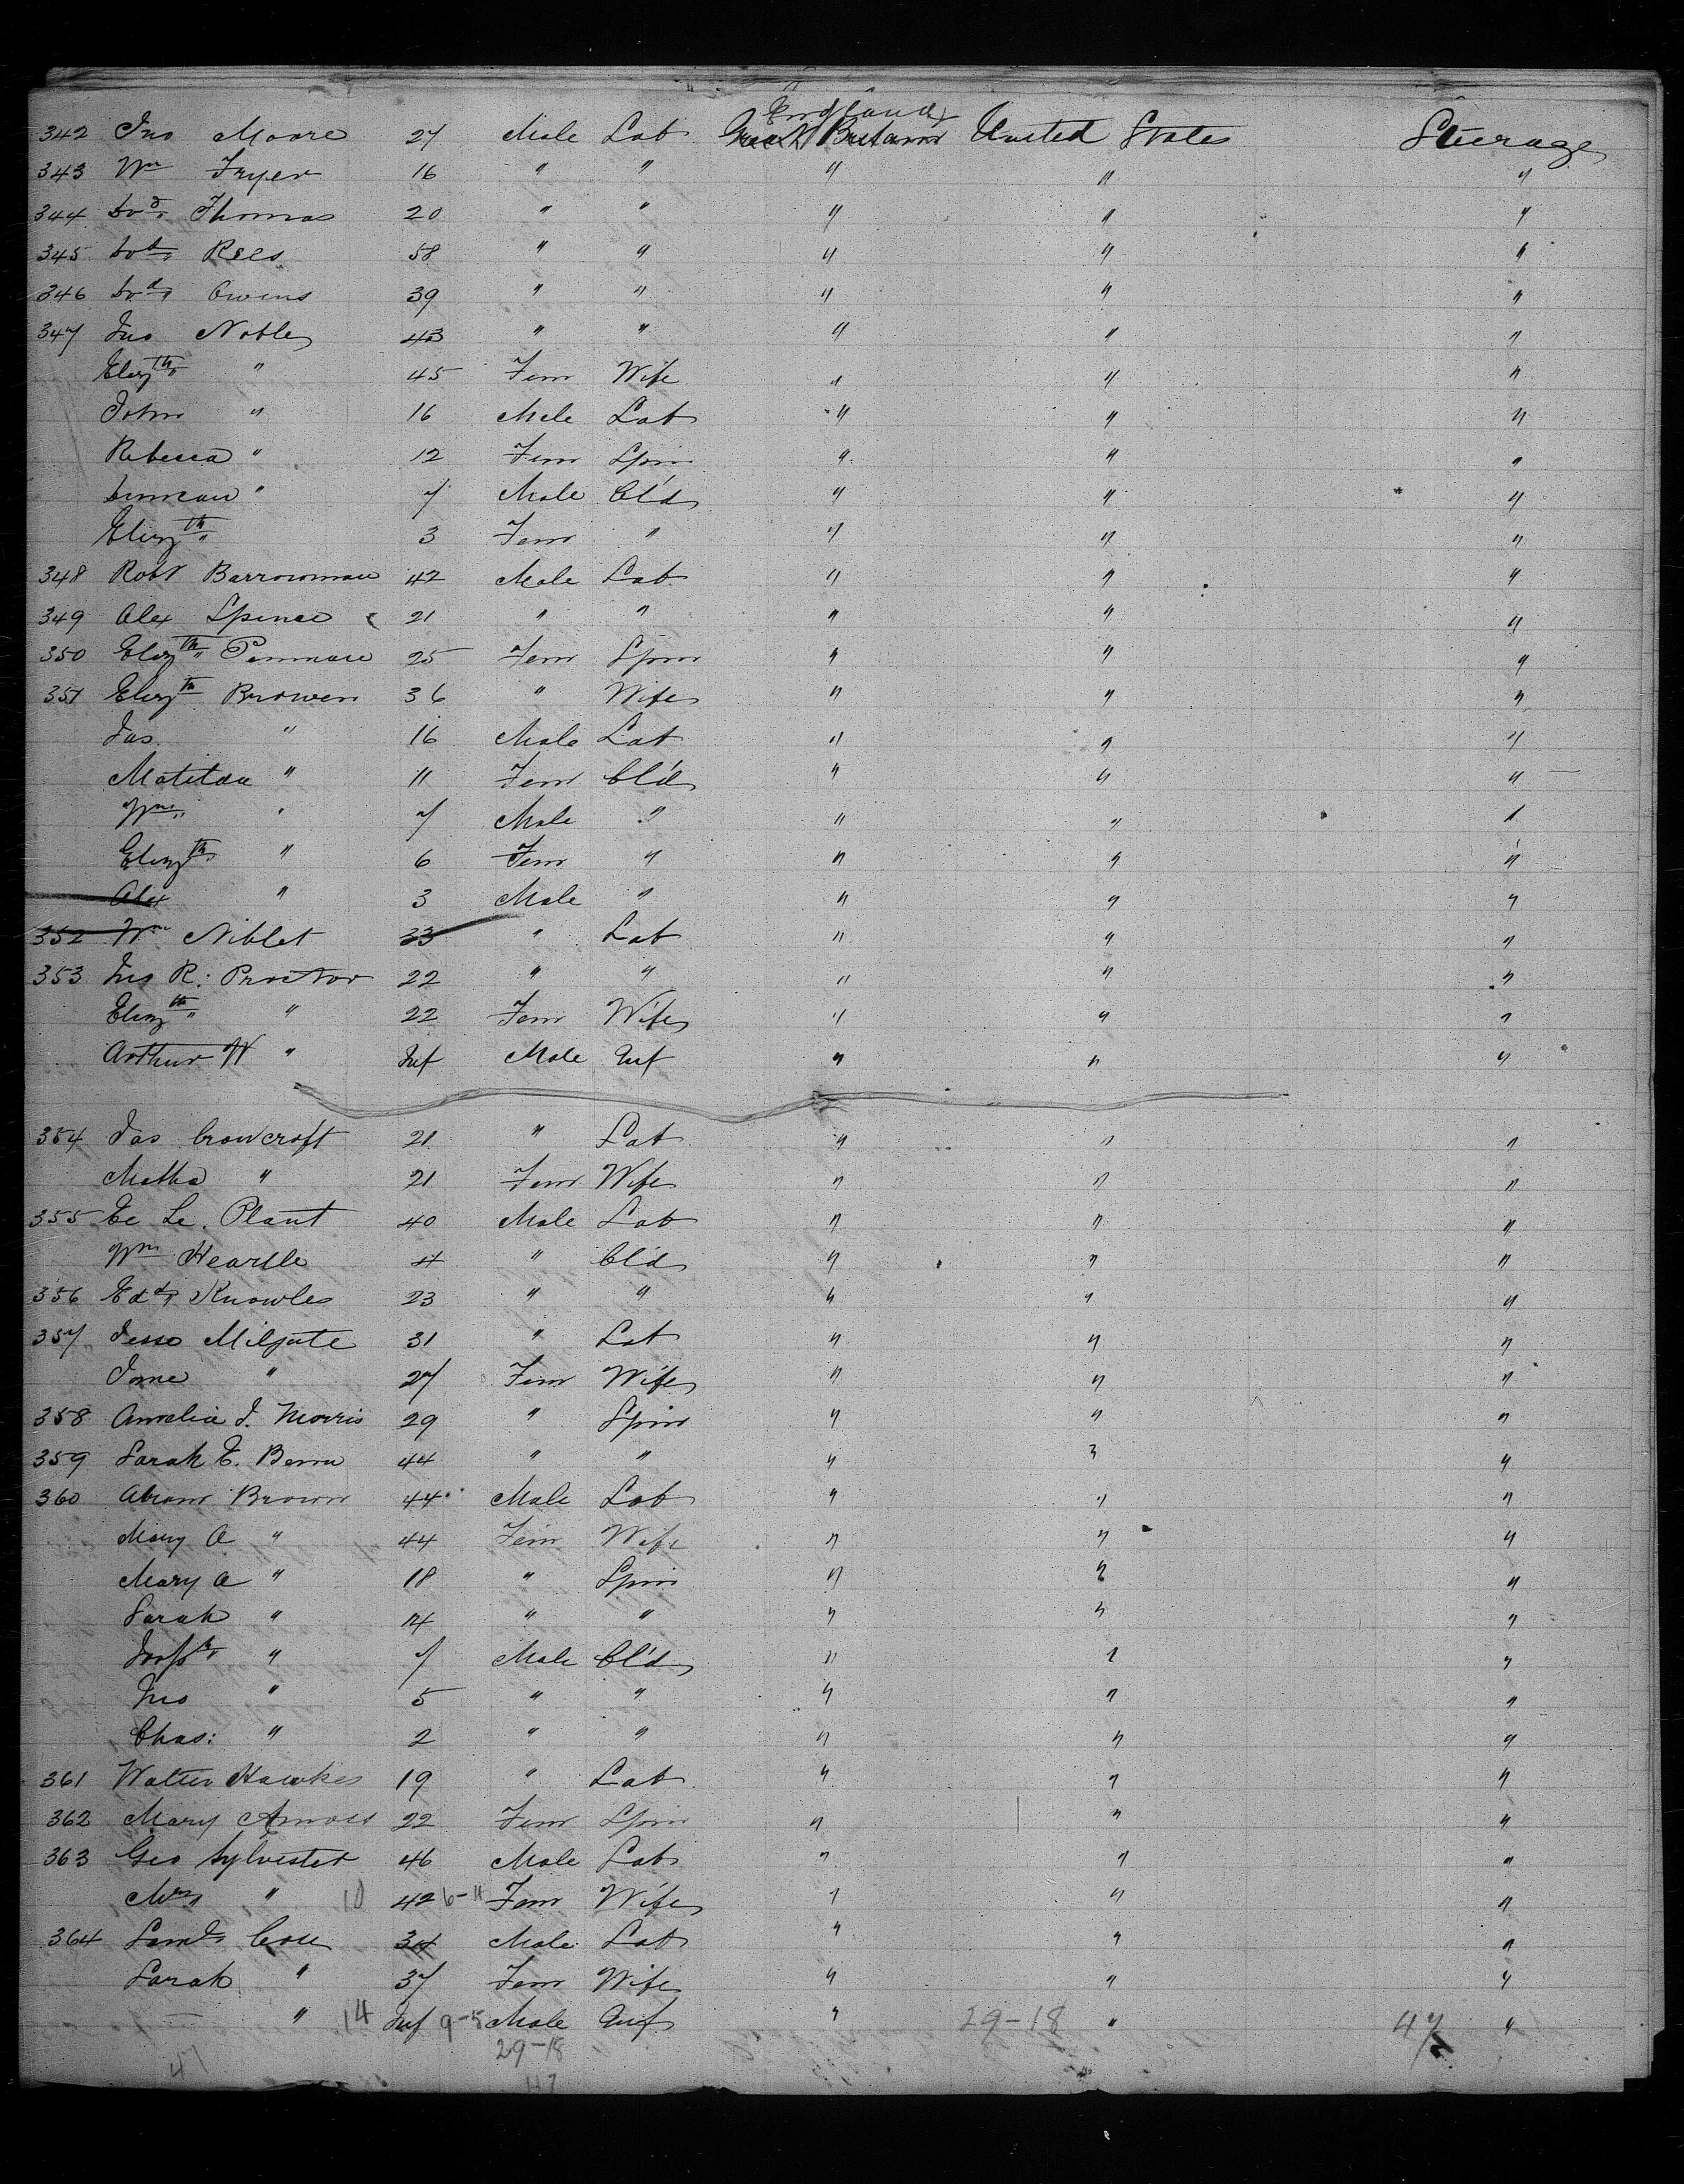 England
342 Jno Moore 27 Male Lab Great Britain United States Steerage
343 Wm Fryer 16 " " " " "
344 Dvd. Thomas 20 " " " " "
345 Dvd. Rees 58 " " " " "
346 Dvd. Owens 39 " " " " "
347 Jno Noble 43 " " " " "
Elizth " 45 Fem Wife " " "
John " 16 Male Lab " " "
Rebecca " 12 Fem Spin " " "
Duncan " 7 Male Ch'd " " "
Elizth " 3 Fem " " " "
348 Robt Barrowman 42 Male Lab " " "
349 Alex Spence 21 " " " " "
350 Elizth 25 Fem Spin " " "
351 Elizth 36 " Wife " " "
Jas. " 16 Male Lab " " "
Matilda " 11 Fem Ch'd " " "
Wm " 7 Male " " " "
Elizth " 6 Fem " " " "
Alex " 3 Male " " " "
352 Wm Niblet 33 " Lab " " "
353 Jno R: Proctor 22 " " " " "
Elizth " 22 Fem Wife " " "
Arthur W " Inf Male Inf " " "
354 Jas Crowcroft 21 " Lab " " "
Matha " 21 Fem Wife " " "
355 Le. Plant 40 Male Lab " " "
Wm 4 " Ch'd " " "
356 Edd. Knowles 23 " " " " "
357 Jesse Milgate 31 " Lab " " "
Jane " 27 Fem Wife " " "
358 Amelia J. Morris 29 " Spin " " "
359 Sarah E. 44 " " " " "
360 Abram Brown 44 Male Lab " " "
Mary A " 44 Fem Wife " " "
Mary A " 18 " Spin " " "
Sarah " 14 " " " " "
Josph " 7 Male Ch'd " " "
Jno " 5 " " " " "
Chas: " 2 " " " " "
361 Walter Hawkes 19 " Lab " " "
362 Mary 22 Fem Spin " " "
363 Geo Sylvester 46 Male Lab " " "
" 10 42 6-11 Fem Wife " " "
364 Saml. 34 Male Lab " " "
Sarah " 37 Fem Wife " " "
— " 14 Inf 9-5 Male Inf " 29-18 " 47 "
29-18
47
47